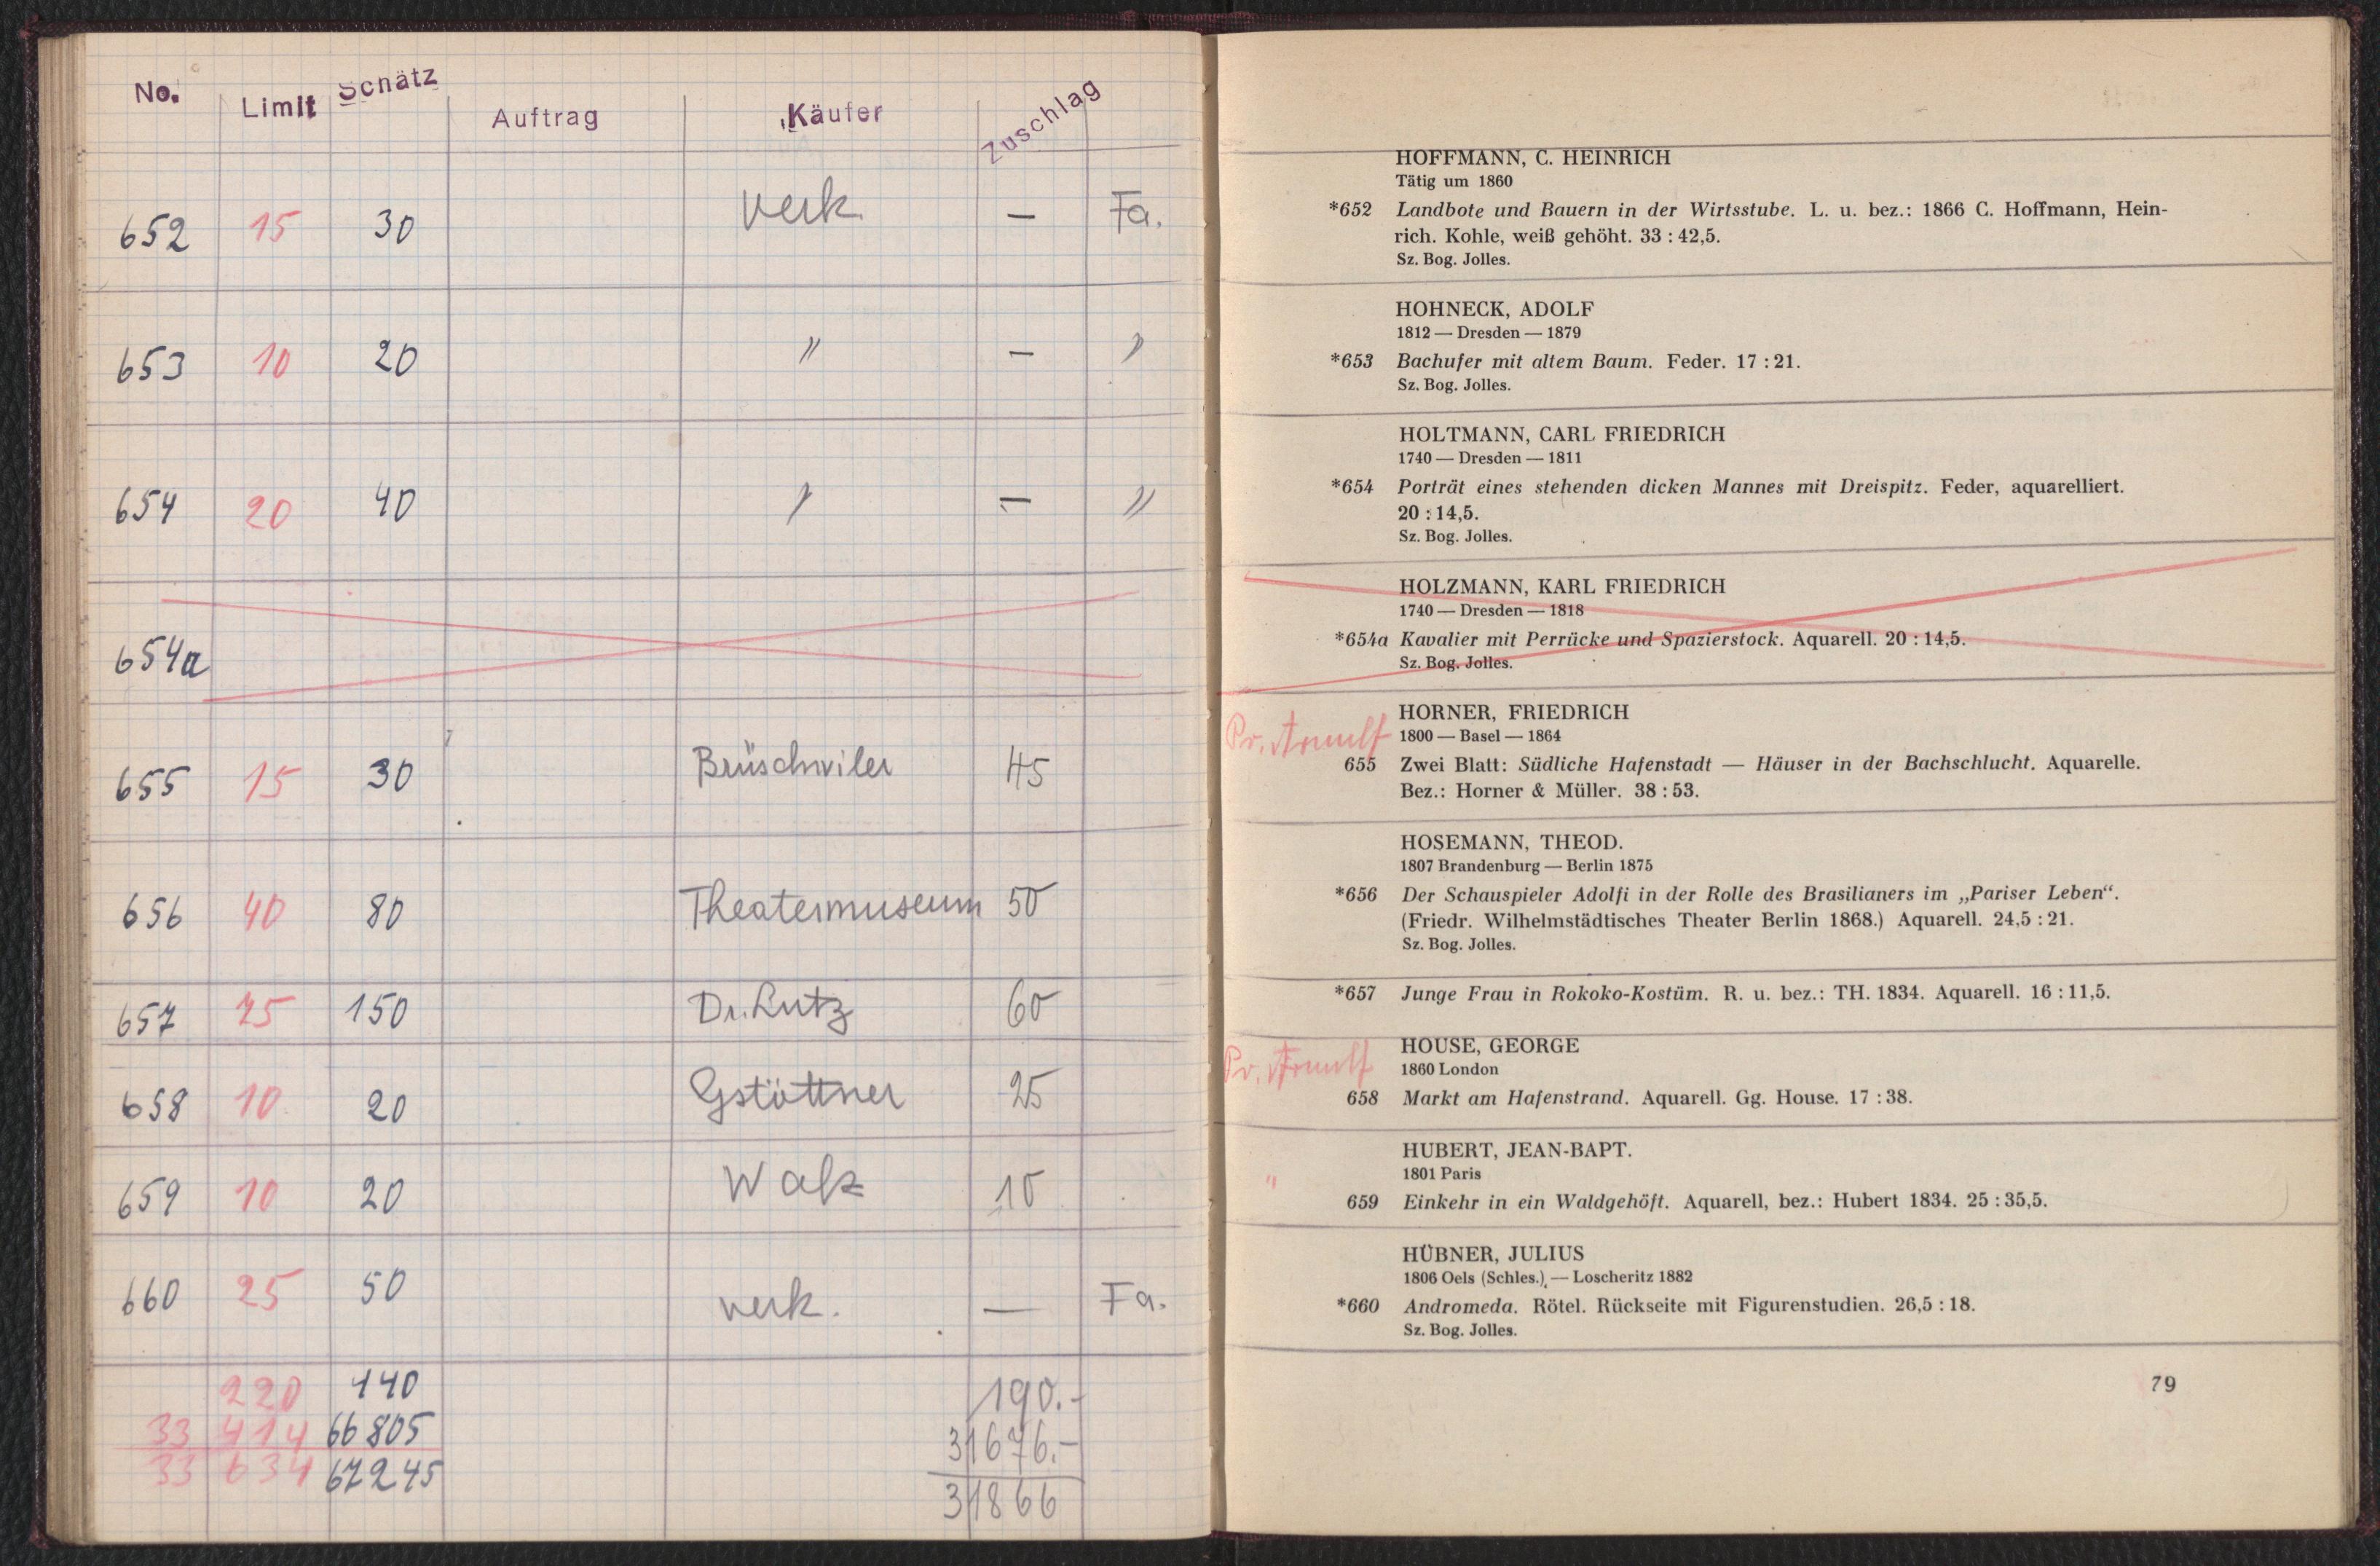 No. Limit Schätz Auftrag Käufer Zuschlag
652 15 30 verk. — Fa.
653 10 20 " — "
654 20 40 " — "
654a
655 15 30 Brüschwiler 45
656 40 80 Theatermuseum 50
657 75 150 Dr. Lutz 60
658 10 20 Gstöttner 25
659 10 20 Walz 10
660 25 50 verk. — Fa.
220 440 190.-
33 414 66 805 31676.-
33 634 67245 31866
HOFFMANN, C. HEINRICH
Tätig um 1860
*652 Landbote und Bauern in der Wirtsstube. L. u. bez.: 1866 C. Hoffmann, Hein-
rich. Kohle, weiß gehöht. 33 : 42,5.
Sz. Bog. Jolles.
HOHNECK, ADOLF
1812 — Dresden — 1879
*653 Bachufer mit altem Baum. Feder. 17 : 21.
Sz. Bog. Jolles.
HOLTMANN, CARL FRIEDRICH
1740 — Dresden — 1811
*654 Porträt eines stehenden dicken Mannes mit Dreispitz. Feder, aquarelliert.
20 : 14,5.
Sz. Bog. Jolles.
HOLZMANN, KARL FRIEDRICH
1740 — Dresden — 1818
*654a Kavalier mit Perrücke und Spazierstock. Aquarell. 20 : 14,5.
Sz. Bog. Jolles.
HORNER, FRIEDRICH
Pr. Arnulf 1800 — Basel — 1864
655 Zwei Blatt: Südliche Hafenstadt — Häuser in der Bachschlucht. Aquarelle.
Bez.: Horner & Müller. 38 : 53.
HOSEMANN, THEOD.
1807 Brandenburg — Berlin 1875
*656 Der Schauspieler Adolfi in der Rolle des Brasilianers im „Pariser Leben“.
(Friedr. Wilhelmstädtisches Theater Berlin 1868.) Aquarell. 24,5 : 21.
Sz. Bog. Jolles.
*657 Junge Frau in Rokoko-Kostüm. R. u. bez.: TH. 1834. Aquarell. 16 : 11,5.
HOUSE, GEORGE
Pr. Arnulf 1860 London
658 Markt am Hafenstrand. Aquarell. Gg. House. 17 : 38.
HUBERT, JEAN-BAPT.
" 1801 Paris
659 Einkehr in ein Waldgehöft. Aquarell, bez.: Hubert 1834. 25 : 35,5.
HÜBNER, JULIUS
1806 Oels (Schles.) — Loscheritz 1882
*660 Andromeda. Rötel. Rückseite mit Figurenstudien. 26,5 : 18.
Sz. Bog. Jolles.
79